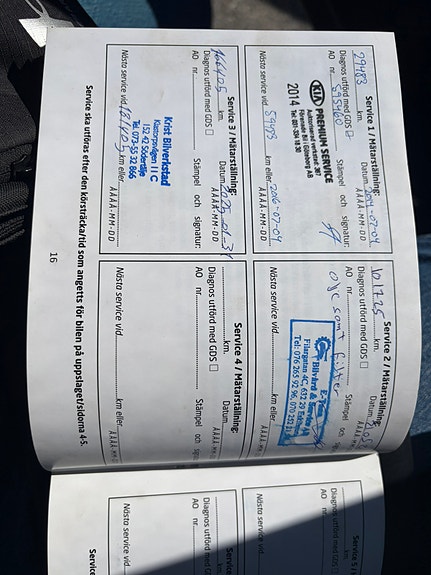 Service 1 / Mätarställning:
29983 km. Datum 2014-07-04
ÅÅÅÅ-MM-DD
Diagnos utförd med GDS
AO nr. 595460 Stämpel och signatur:
KIA PREMIUM SERVICE
2014
Nästa service vid 59983 km eller 2016-07-04
ÅÅÅÅ-MM-DD
Service 2 / Mätarställning:
101725 km. Datum
ÅÅÅÅ-MM-DD
Diagnos utförd med GDS
AO nr. Stämpel och
olje samt filter
E-Tem
Bilvård & Service AB
Filargatan 4C, 632 29
Tel: 076 265 92 96, 070
Nästa service vid. km eller
ÅÅÅÅ-MM-D
Service 3 / Mätarställning:
166405 km. Datum
ÅÅÅÅ-MM-DD
Diagnos utförd med GDS
AO nr. Stämpel och signatur:
Krist Bilverkstad
152 42 Södertälje
Tel. 073-55 32 866
Nästa service vid km eller
ÅÅÅÅ-MM-DD
Service 4 / Mätarställning:
km. Datum
ÅÅÅÅ-MM-
Diagnos utförd med GDS
AO nr. Stämpel och
Nästa service vid. km eller
ÅÅÅÅ-MM-D
Service ska utföras efter den körsträcka/tid som angetts för bilen på uppslaget/sidorna 4-5.
16
Service 5 /
km.
Diagnos utförd med GDS
AO nr.
Nästa service vid.
Service
km.
Diagnos utförd med GDS
AO nr.
Nästa service vid
Service